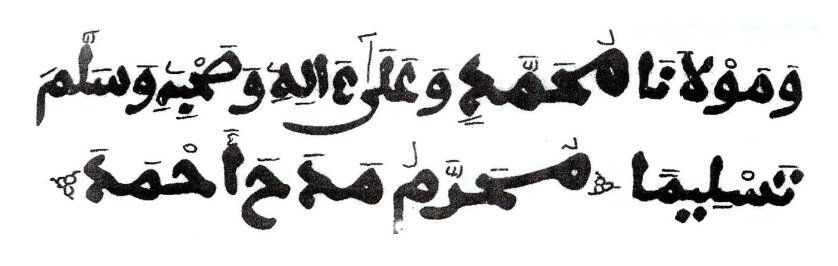 وَمَوْلَانَا مُحَمَّدٍ وَعَلَىٰ ءَالِهِ وَصَحْبِهِ وَسَلَّمَ
تَسْلِيمًا مُحَرَّمُ مَدَحَ أَحْمَدَ